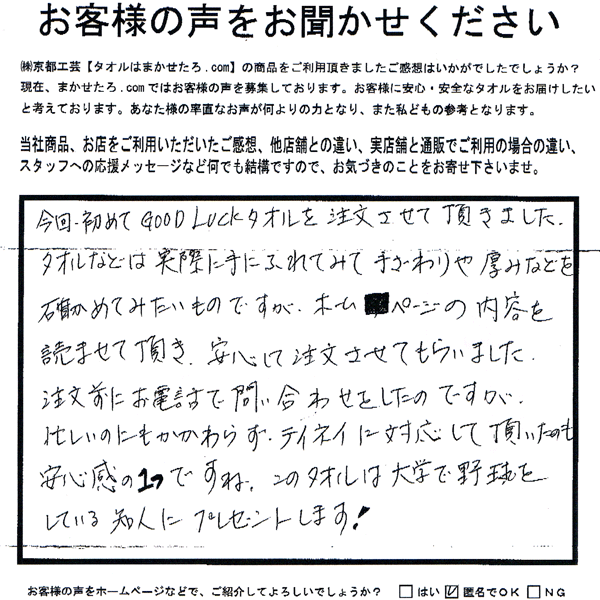 お客様の声をお聞かせください
㈱京都工芸【タオルはまかせたろ.com】の商品をご利用頂きましたご感想はいかがでしたでしょうか？
現在、まかせたろ.comではお客様の声を募集しております。お客様に安心・安全なタオルをお届けしたい
と考えております。あなた様の率直なお声が何よりの力となり、また私どもの参考となります。
当社商品、お店をご利用いただいたご感想、他店舗との違い、実店舗と通販でご利用の場合の違い、
スタッフへの応援メッセージなど何でも結構ですので、お気づきのことをお寄せ下さいませ。
今回、初めて GOOD LUCKタオルを 注文させて 頂きました。
タオルなどは 実際に手にふれてみて 手ざわりや 厚みなどを
確かめてみたいものですが、ホームページの 内容を
読ませて頂き、安心して 注文させてもらいました。
注文前に お電話で 問い合わせをしたのですが、
忙しいのにもかかわらず、テイネイに 対応して 頂いたのも
安心感の1つですね。このタオルは大学で野球を
している 知人に プレゼントします!
お客様の声をホームページなどで、ご紹介してよろしいでしょうか？ □はい ☑匿名でOK □NG